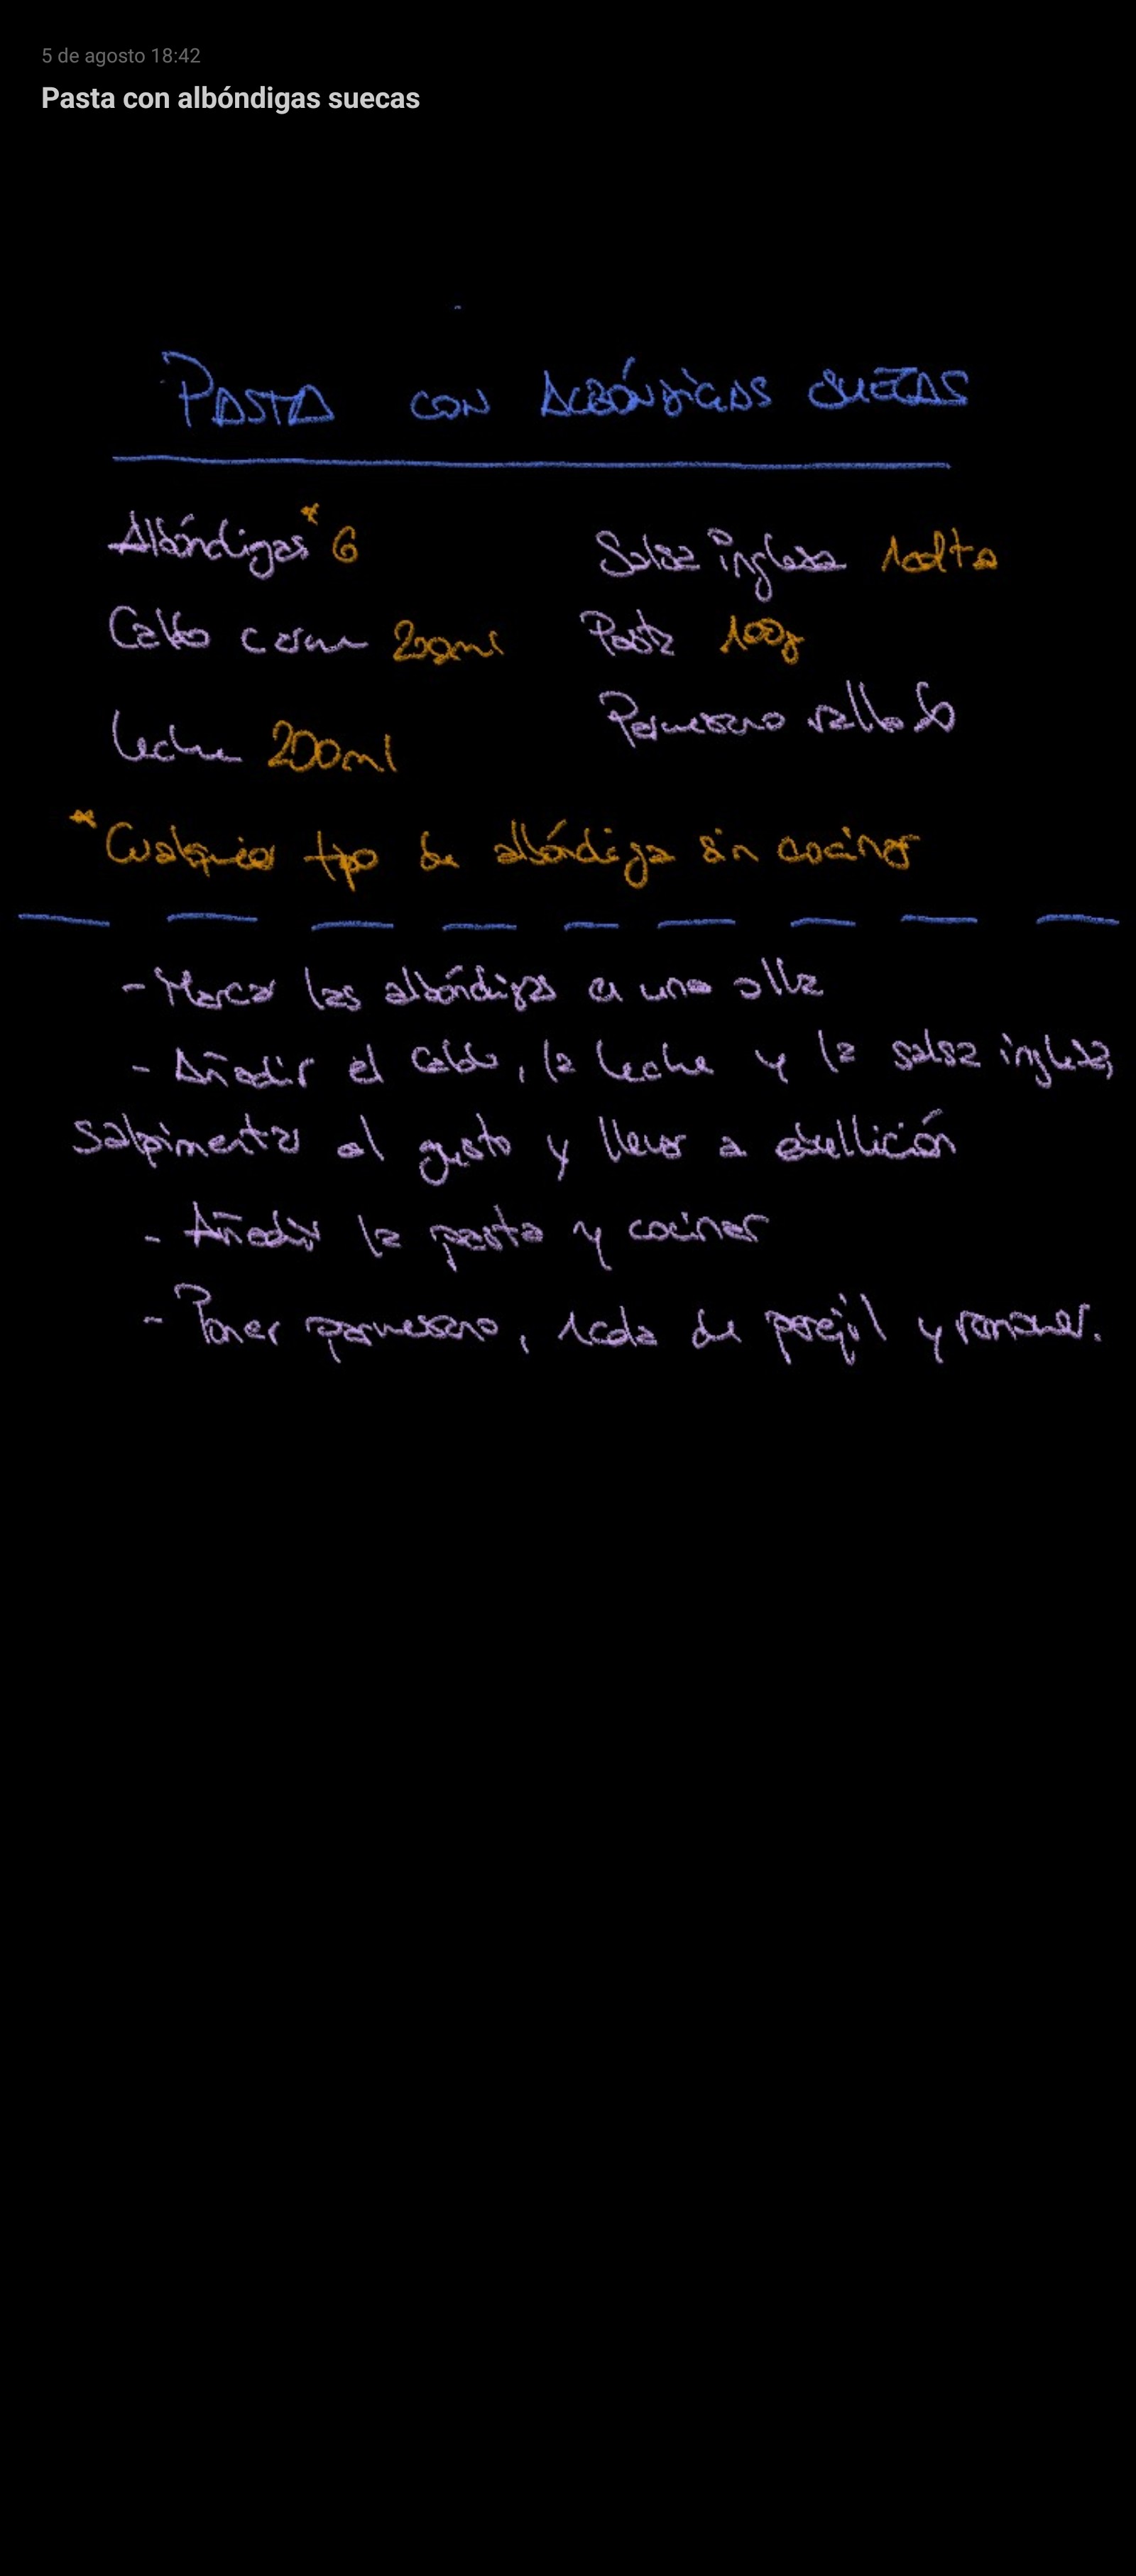 5 de agosto 18:42
Pasta con albóndigas suecas
PASTA CON ALBÓNDIGAS SUECAS
Albóndigas* 6
Salsa inglesa 1cdta
Caldo carne 200ml
Pasta 100g
Leche 200ml
Parmesano rallado
*Cualquier tipo de albóndiga sin cocinar
- Marcar las albóndigas en una olla
- Añadir el caldo, la leche y la salsa inglesa,
salpimentar al gusto y llevar a ebullición
- Añadir la pasta y cocinar
- Poner parmesano, 1cda de perejil y remover.